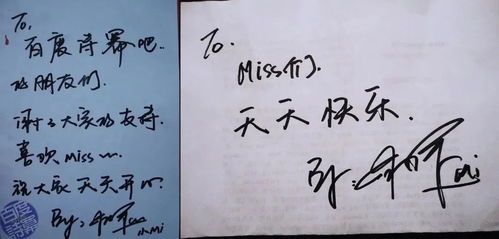 To,
百度诗幂吧.
的朋友们.
谢谢大家的支持.
喜欢Miss
祝大家天天开心.
By:
小Mi
To.
Miss们.
天天快乐.
By:
Mi